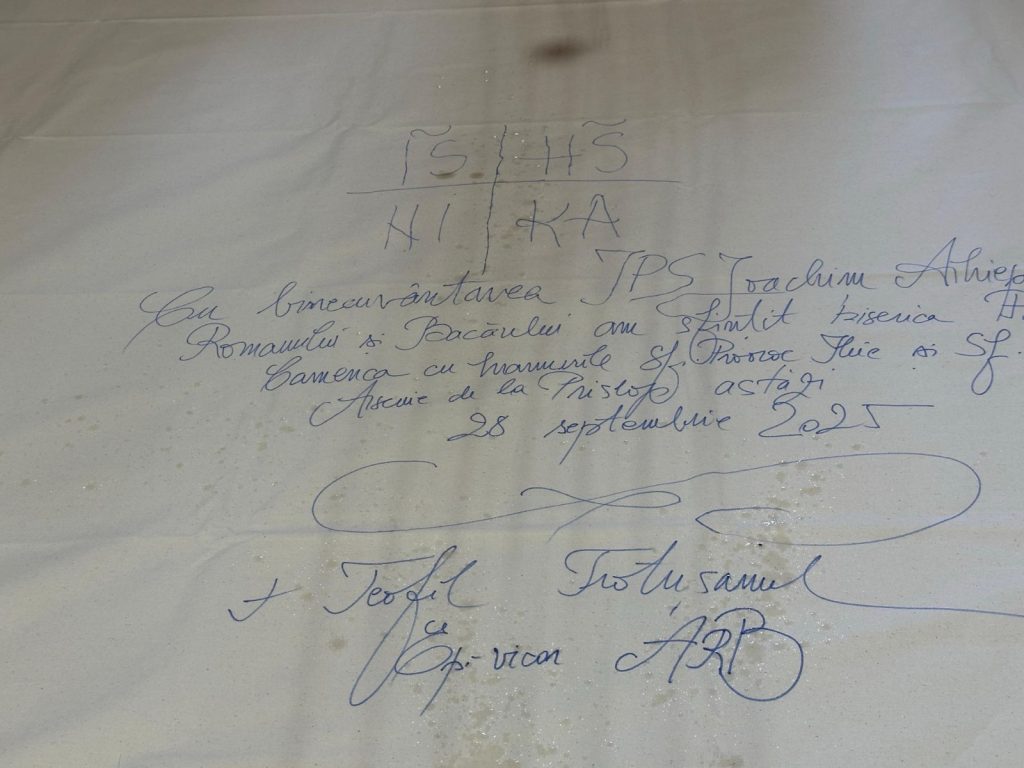 IS HS
NI KA
Cu binecuvântarea IPS Ioachim Arhiep
Romanului și Bacăului am sfințit biserica
Camenca cu hramurile Sf. Proroc Ilie si Sf.
Arsenie de la Prislop astăzi
28 septembrie 2025
+ Teofil Trotușanul
Ep.-vicar ARB